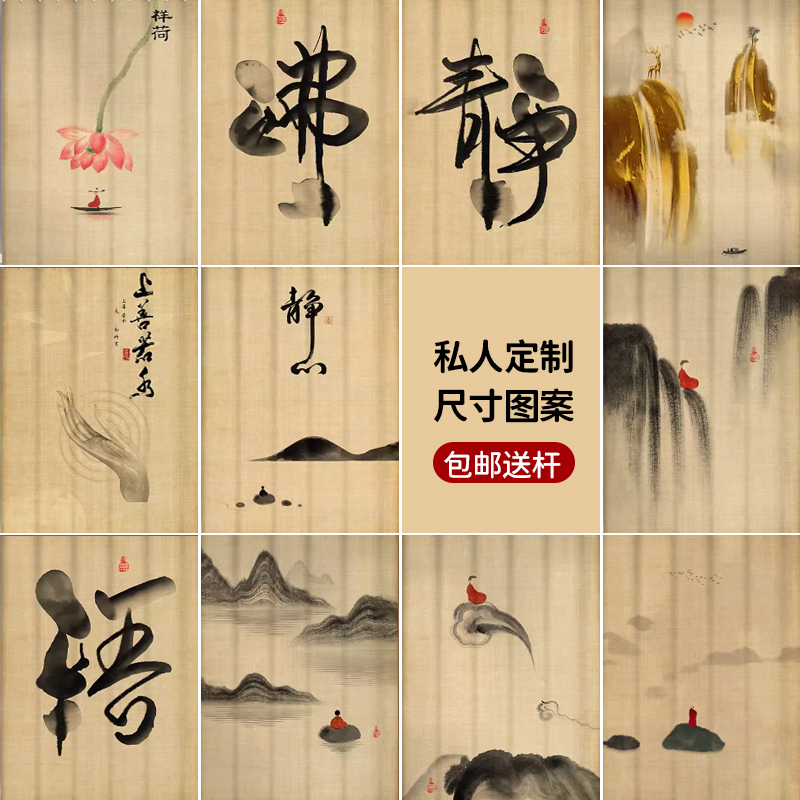 祥荷
佛
静
上善若水
静心
私人定制
尺寸图案
包邮送杆
悟